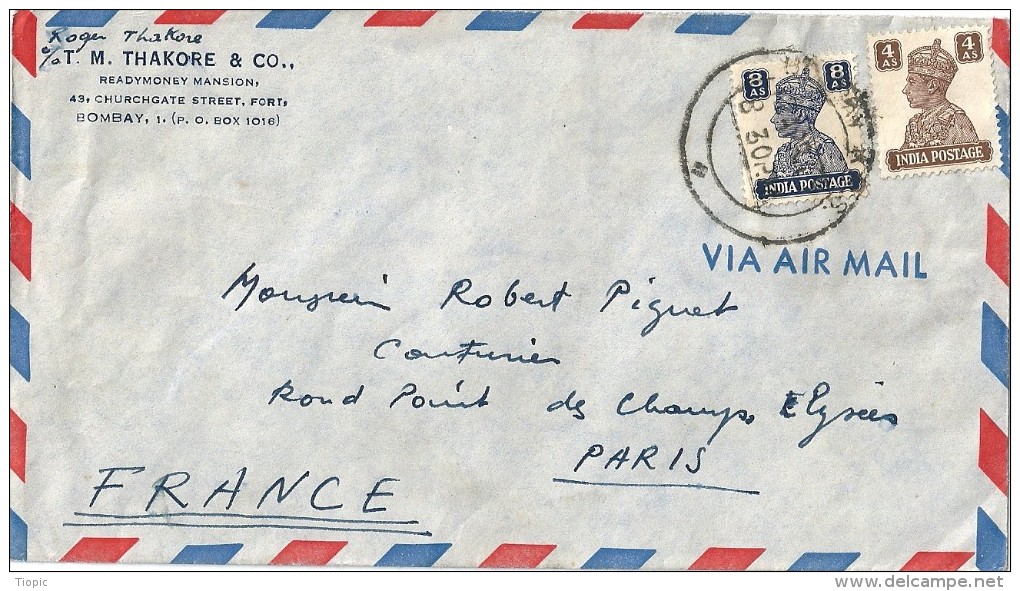 Roger Thakore
c/o T. M. THAKORE & CO.,
READYMONEY MANSION,
43, CHURCHGATE STREET, FORT,
BOMBAY, 1. (P. O. BOX 1016)
8 AS 8 AS
INDIA POSTAGE
4 AS 4 AS
INDIA POSTAGE
VIA AIR MAIL
Monsieur Robert Piguet
Couturier
Rond Point des Champs Elysées
PARIS
FRANCE
Tiopic
www.delcampe.net